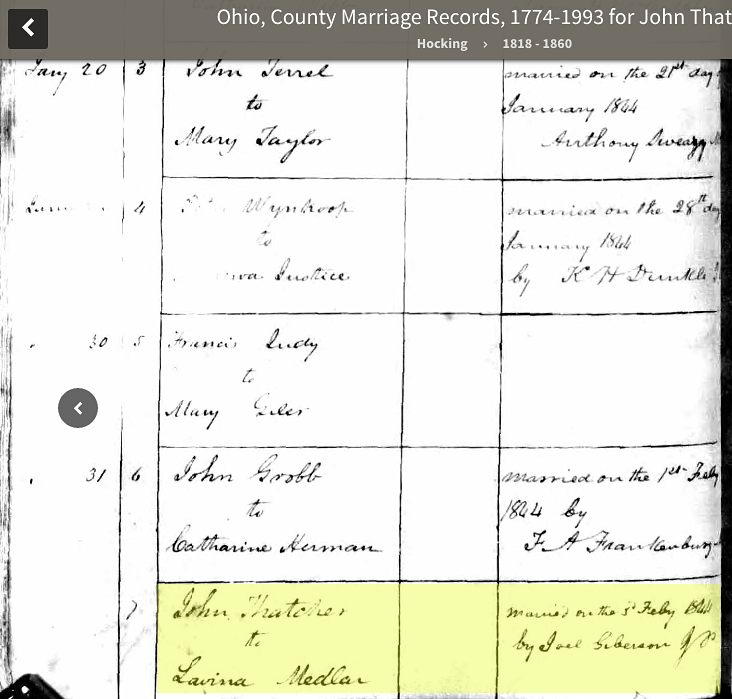 Ohio, County Marriage Records, 1774-1993 for John That
Hocking › 1818 - 1860
Jany 20 3 John Terrel married on the 21st day
to January 1844
Mary Taylor Anthony
4 Wynkoop married on the 28th day
to January 1844
Justice by K H Dunkle
30 5 Francis Judy
to
Mary Giler
31 6 John Grobb married on the 1st Feby
to 1844 by
Catharine Herman F A Frankenburg
7 John Thatcher married on the Feby 1844
to by Joel Giberson J P
Lavina Medlar